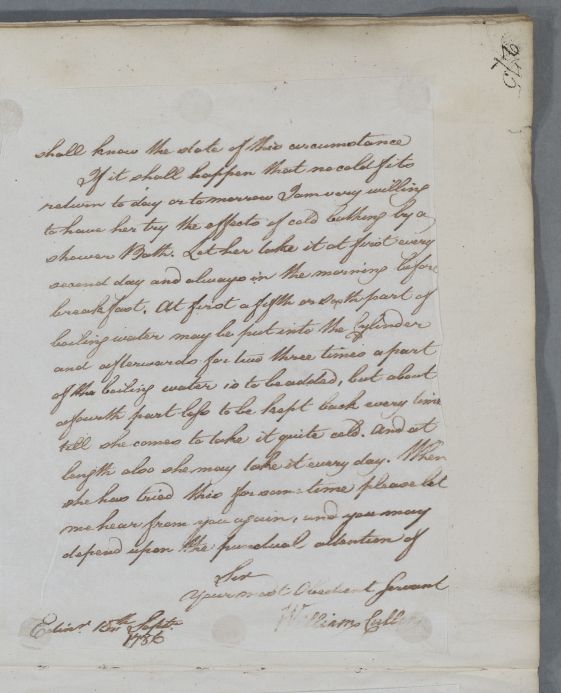 shall know the state of this circumstance
If it shall happen that no cold fits
return to day or to morrow I am very willing
to have her try the effects of cold bathing by a
shower Bath. Let her take it at first every
second day and always in the morning before
breakfast. At first a fifth or sixth part of
boiling water may be put into the Cylinder
and afterwards for two three times a part
of the boiling water is to be added, but about
a fourth part less to be kept back every time
till she comes to take it quite cold. And at
length also she may take it every day. When
she has tried this for some time please let
me hear from you again, and you may
depend upon the punctual attention of
Sir
Your most Obedient Servant
William Cullen
Edinr. 15th Septr.
1786